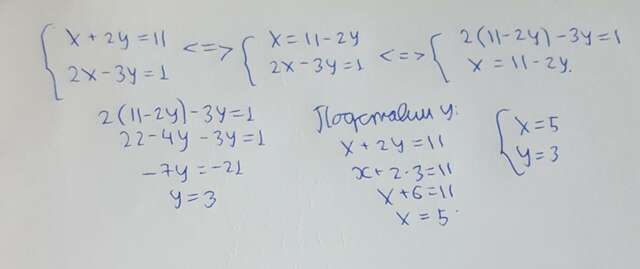 { x + 2y = 11 <=> { x = 11 - 2y <=> { 2(11-2y) - 3y = 1
2x - 3y = 1 2x - 3y = 1 x = 11 - 2y.
2(11-2y) - 3y = 1
22 - 4y - 3y = 1
-7y = -21
y = 3
Подставим y:
x + 2y = 11
x + 2·3 = 11
x + 6 = 11
x = 5.
{ x = 5
y = 3